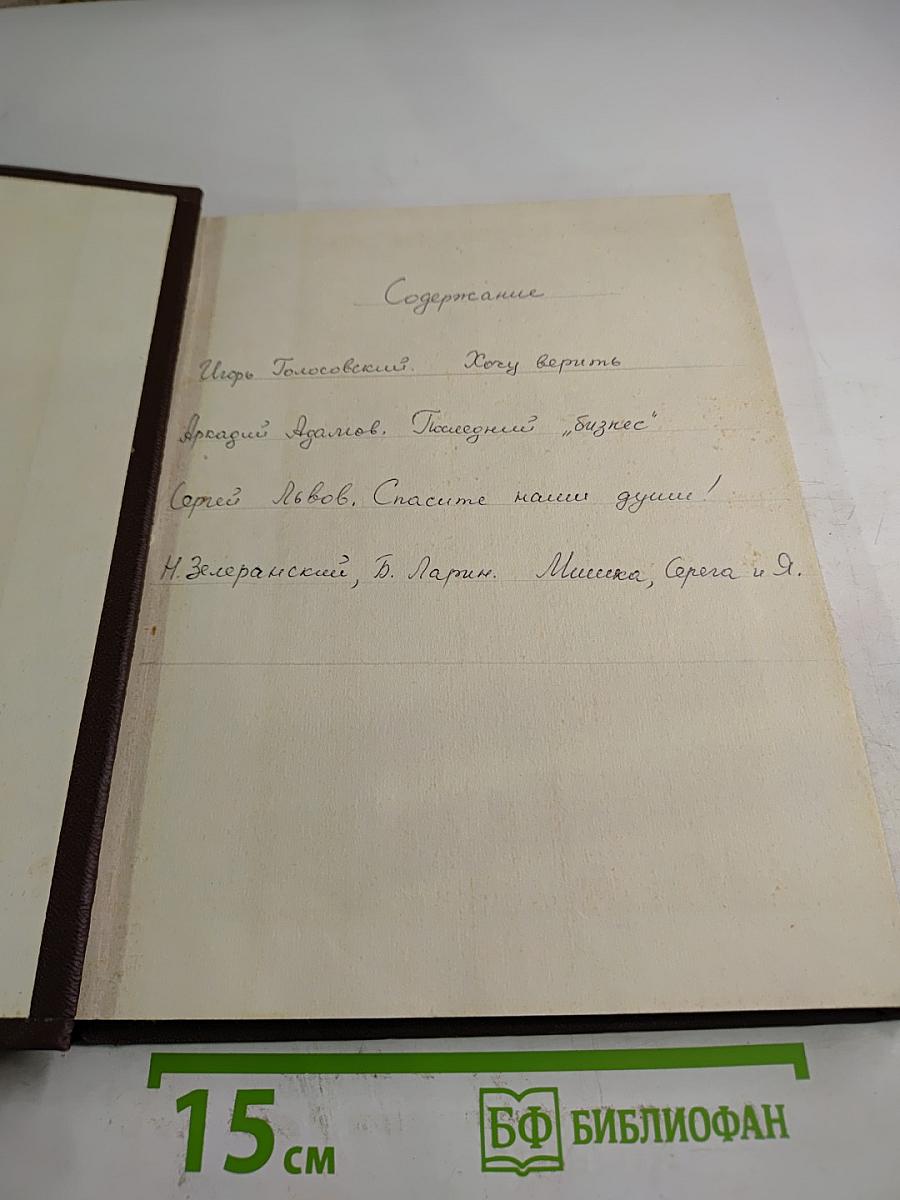 Содержание
Игорь Голосовский. Хочу верить
Аркадий Адамов. Последний „бизнес“
Сергей Львов. Спасите наши души!
Н. Зелеранский, Б. Ларин. Мишка, Серега и Я.
15 см
БФ БИБЛИОФАН